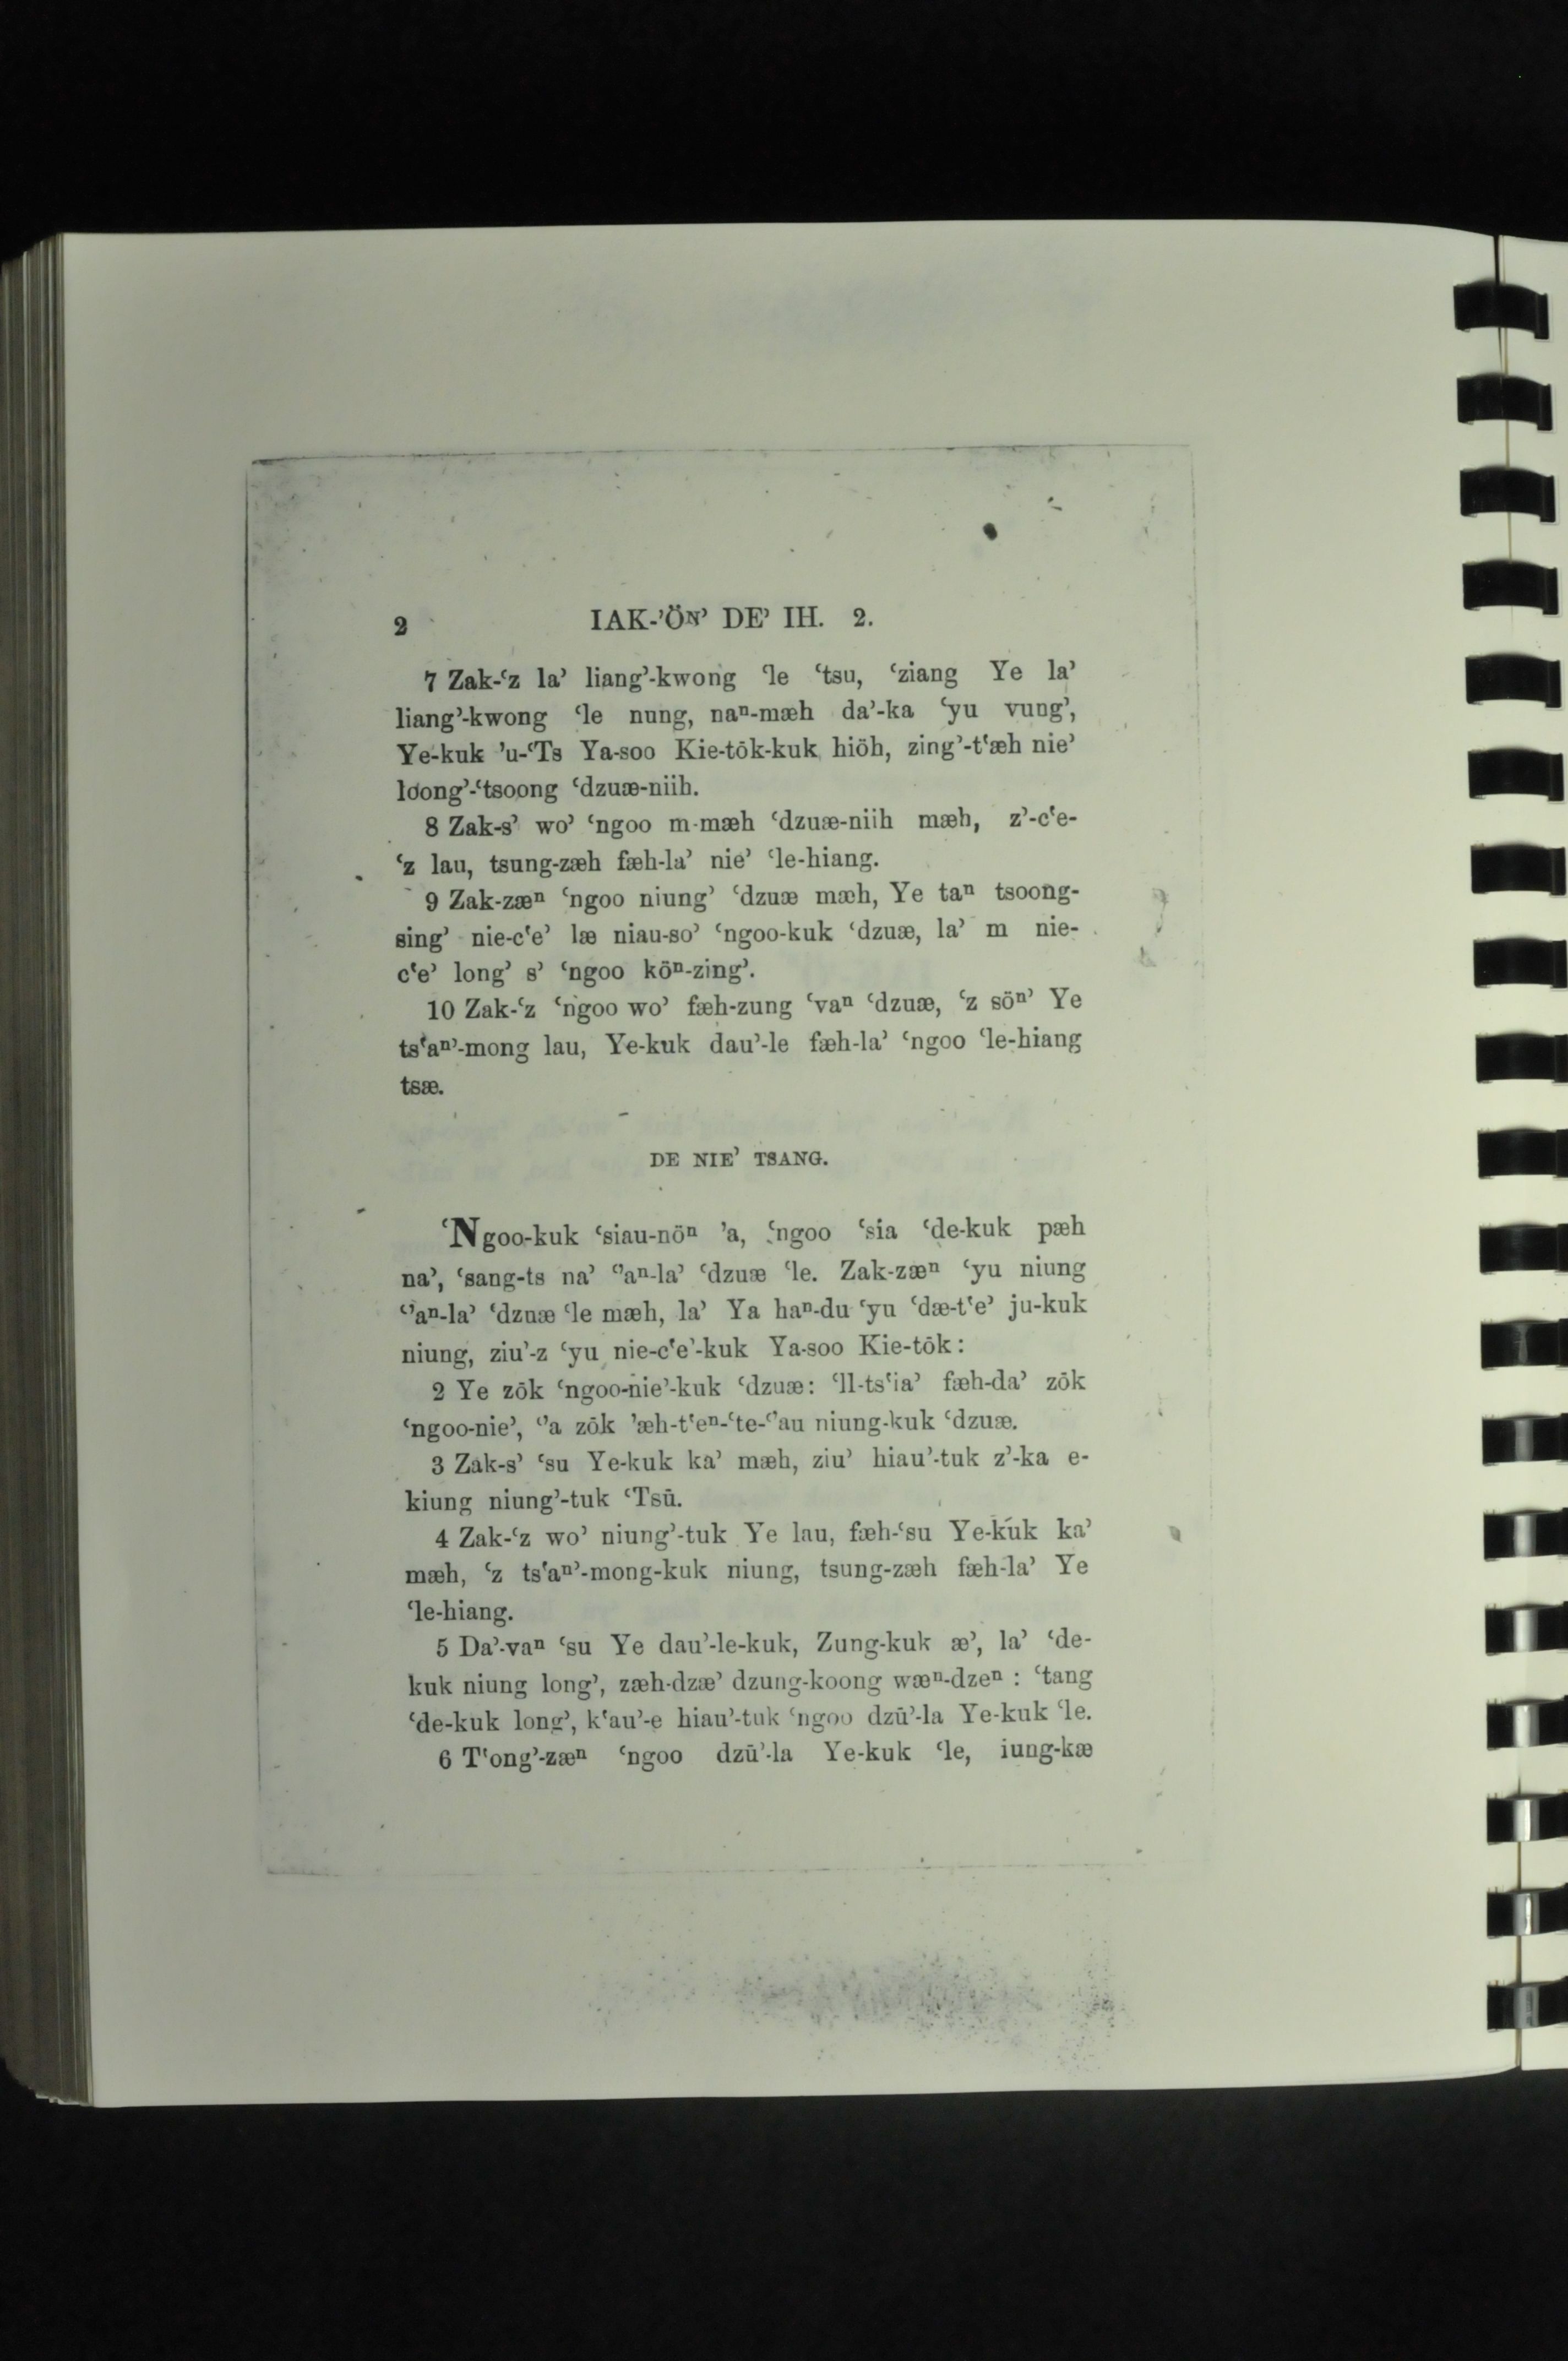 2 IAK-’ÖN’ DE’ IH. 2.
7 Zak-‘z la’ liang’-kwong ‘le ‘tsu, ‘ziang Ye la’
liang’-kwong ‘le nung, naⁿ-mæh da’-ka ‘yu vung’,
Ye-kuk ’u-‘Ts Ya-soo Kie-tōk-kuk hiöh, zing’-t‘æh nie’
loong’-‘tsoong ‘dzuæ-niih.
8 Zak-s’ wo’ ‘ngoo m-mæh ‘dzuæ-niih mæh, z’-c‘e-
‘z lau, tsung-zæh fæh-la’ nie’ ‘le-hiang.
9 Zak-zæⁿ ‘ngoo niung’ ‘dzuæ mæh, Ye taⁿ tsoong-
sing’ nie-c‘e’ læ niau-so’ ‘ngoo-kuk ‘dzuæ, la’ m nie-
c‘e’ long’ s’ ‘ngoo köⁿ-zing’.
10 Zak-‘z ‘ngoo wo’ fæh-zung ‘vaⁿ ‘dzuæ, ‘z söⁿ’ Ye
ts‘aⁿ’-mong lau, Ye-kuk dau’-le fæh-la’ ‘ngoo ‘le-hiang
tsæ.
DE NIE’ TSANG.
‘Ngoo-kuk ‘siau-nöⁿ ’a, ‘ngoo ‘sia ‘de-kuk pæh
na’, ‘sang-ts na’ ‘’aⁿ-la’ ‘dzuæ ‘le. Zak-zæⁿ ‘yu niung
‘’aⁿ-la’ ‘dzuæ ‘le mæh, la’ Ya haⁿ-du ‘yu ‘dæ-t‘e’ ju-kuk
niung, ziu’-z ‘yu nie-c‘e’-kuk Ya-soo Kie-tōk:
2 Ye zōk ‘ngoo-nie’-kuk ‘dzuæ: ‘ll-ts‘ia’ fæh-da’ zōk
‘ngoo-nie’, ‘’a zōk ’æh-t‘eⁿ-‘te-‘’au niung-kuk ‘dzuæ.
3 Zak-s’ ‘su Ye-kuk ka’ mæh, ziu’ hiau’-tuk z’-ka e-
kiung niung’-tuk ‘Tsū.
4 Zak-‘z wo’ niung’-tuk Ye lau, fæh-‘su Ye-kuk ka’
mæh, ‘z ts‘aⁿ’-mong-kuk niung, tsung-zæh fæh-la’ Ye
‘le-hiang.
5 Da’-vaⁿ ‘su Ye dau’-le-kuk, Zung-kuk æ’, la’ ‘de-
kuk niung long’, zæh-dzæ’ dzung-koong wæⁿ-dzeⁿ : ‘tang
‘de-kuk long’, k‘au’-e hiau’-tuk ‘ngoo dzū’-la Ye-kuk ‘le.
6 T‘ong’-zæⁿ ‘ngoo dzū’-la Ye-kuk ‘le, iung-kæ